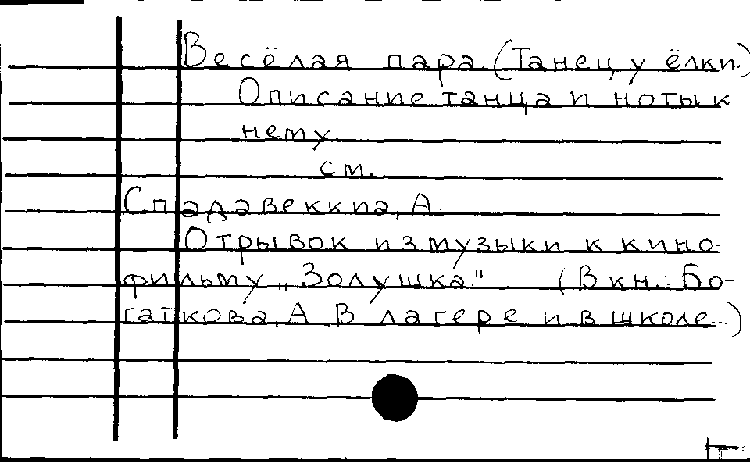 Весёлая пара. (Танец у ёлки.)
Описание танца и ноты к
нему.
см.
Спадавеккиа, А.
Отрывок из музыки к кино-
фильму „Золушка". (В кн.: Бо-
гаткова, А. В лагере и в школе.)